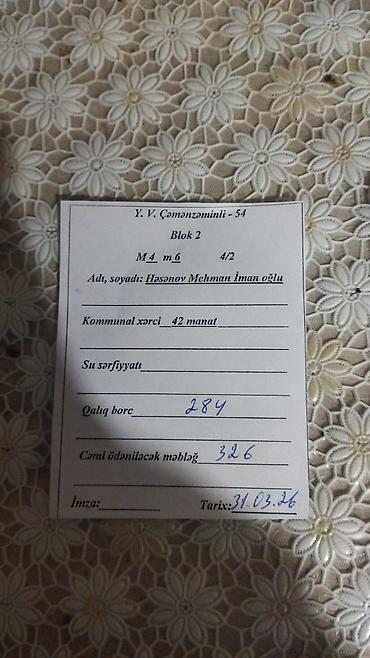 Y. V. Çəmənzəminli - 54
Blok 2
M 4 m 6 4/2
Adı, soyadı: Həsənov Mehman İman oğlu
Kommunal xərci 42 manat
Su sərfiyyatı
Qalıq borc 284
Cəmi ödəniləcək məbləğ 326
İmza: Tarix: 31.03.26